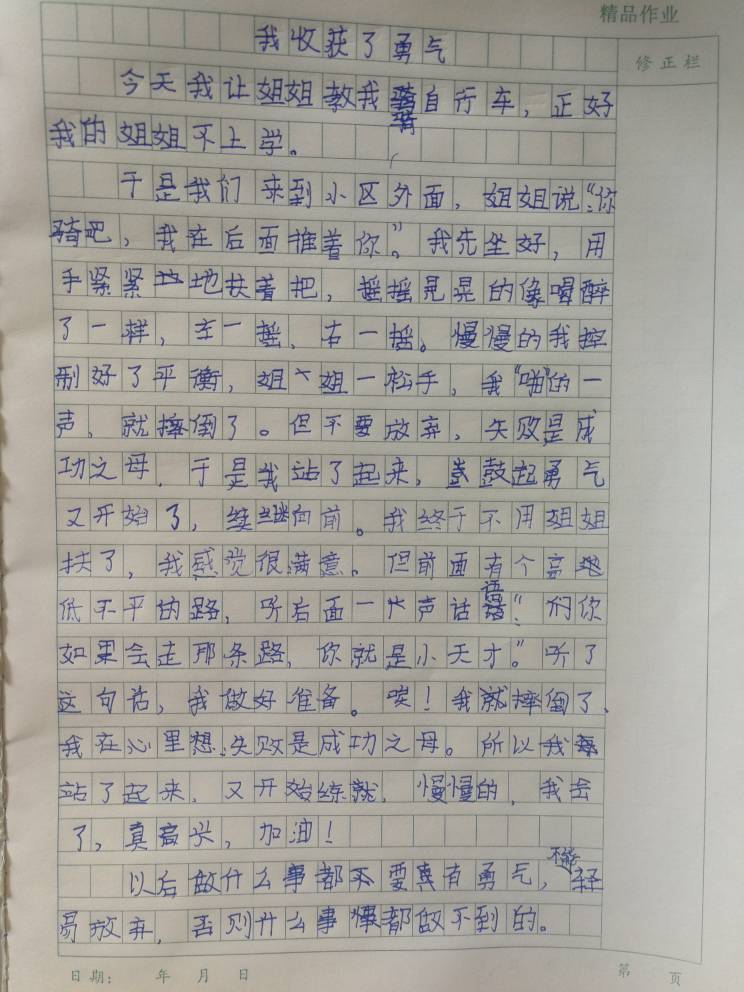 精品作业
修正栏
我收获了勇气
今天我让姐姐教我骑自行车，正好
我的姐姐不上学。
于是我们来到小区外面，姐姐说：“你
骑吧，我在后面推着你。”我先坐好，用
手紧紧地扶着把，摇摇晃晃的像喝醉
了一样，左一摇、右一摇。慢慢的我控
制好了平衡，姐姐一松手，我“啪”的一
声，就摔倒了。但不要放弃，失败是成
功之母，于是我站了起来，鼓起勇气
又开始了，继续向前。我终于不用姐姐
扶了，我感觉很满意。但前面有个高
低不平的路，听后面一声话语：“们你
如果会走那条路，你就是小天才。”听了
这句话，我做好准备。唉！我就摔倒了，
我在心里想：失败是成功之母。所以我
站了起来，又开始练就，慢慢的，我会
了，真高兴，加油！
以后做什么事都要有勇气，不能轻
易放弃，否则什么事都做不到的。
日期： 年 月 日 第 页